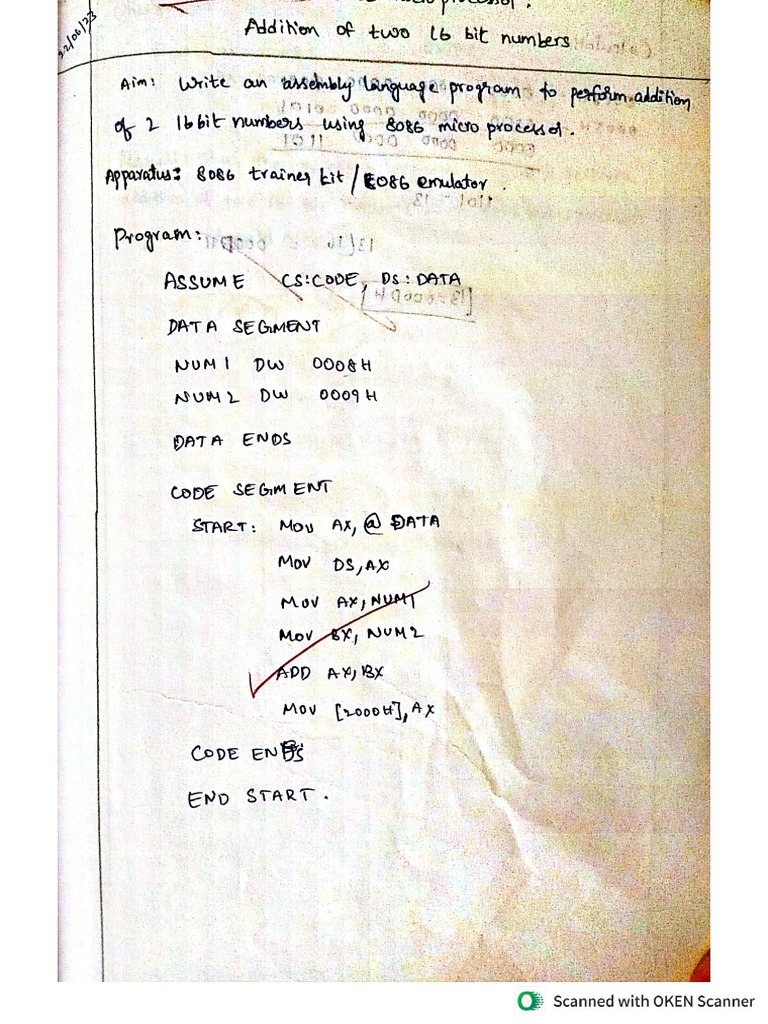 microprocessor.
22/06/23
Addition of two 16 bit numbers
Aim: Write an assembly language program to perform addition
of 2 16bit numbers using 8086 microprocessor.
Apparatus: 8086 trainer kit / 8086 emulator.
Program:
ASSUME CS:CODE, DS:DATA
DATA SEGMENT
NUM1 DW 0008H
NUM2 DW 0009H
DATA ENDS
CODE SEGMENT
START: MOV AX, @DATA
MOV DS, AX
MOV AX, NUM1
MOV BX, NUM2
ADD AX, BX
MOV [2000H], AX
CODE ENDS
END START.
Scanned with OKEN Scanner